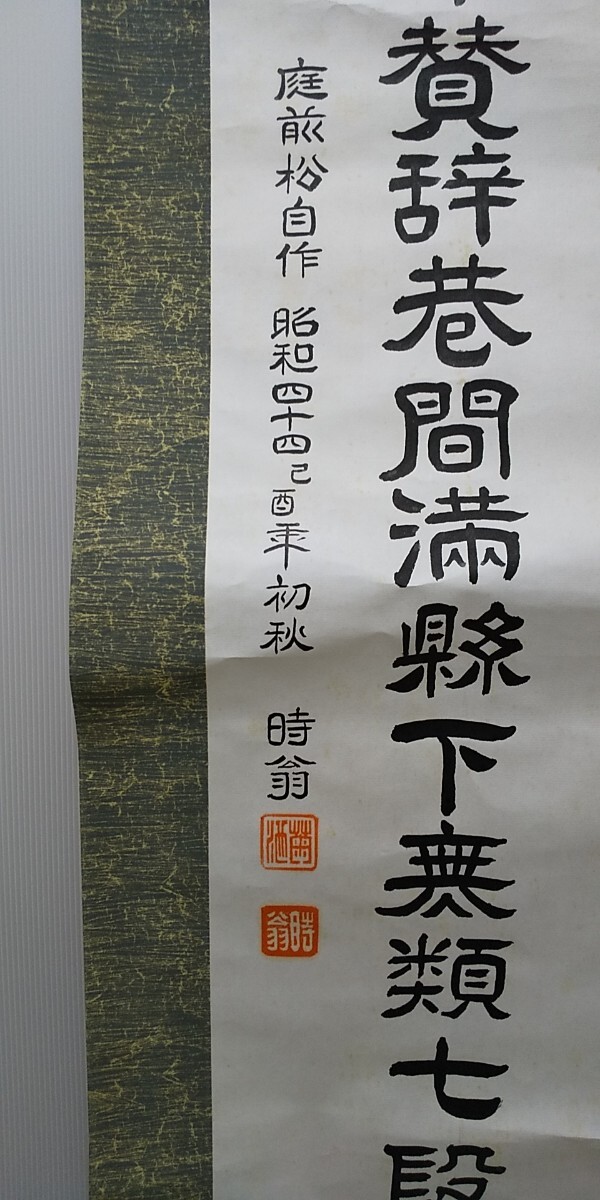 賛辞巷間満縣下無類七段
庭前松自作 昭和四十四己酉年初秋 時翁
時翁